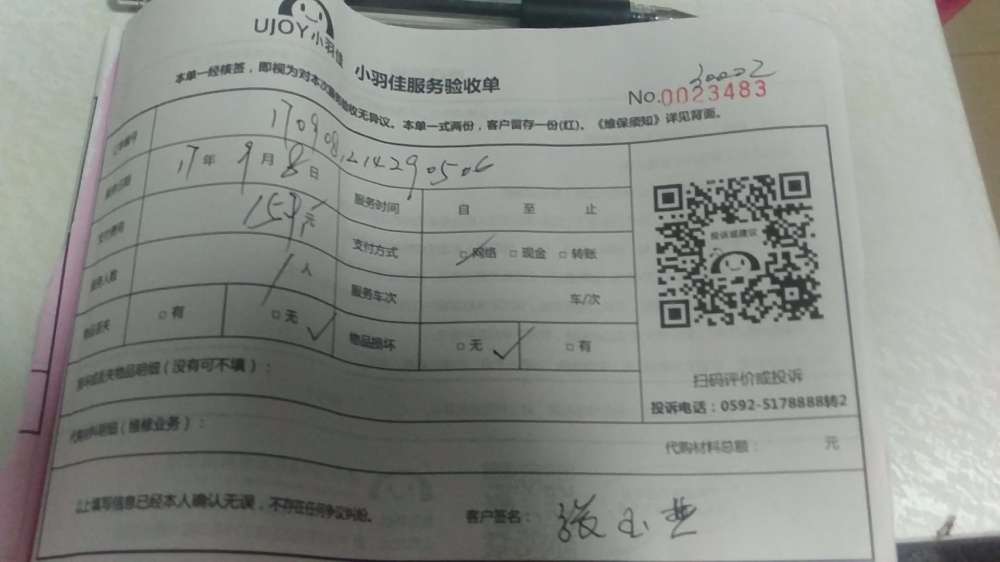 UJOY小羽佳
小羽佳服务验收单
30002
No.0023483
本单一经核签，即视为对本次服务验收无异议。本单一式两份，客户留存一份(红)。《维保须知》详见背面。
1709081214290506
17年9月8日 服务时间 自 至 止
元 支付方式 □网络 □现金 □转账
服务人数 1人 服务车次 车/次
物品丢失 □有 □无 ✓ 物品损坏 □无 ✓ □有
投诉或建议
扫码评价或投诉
投诉电话：0592-5178888转2
损坏或丢失物品明细(没有可不填)：
代购材料明细(维修业务)： 代购材料总额： 元
以上填写信息已经本人确认无误，不存在任何争议纠纷。 客户签名： 张玉